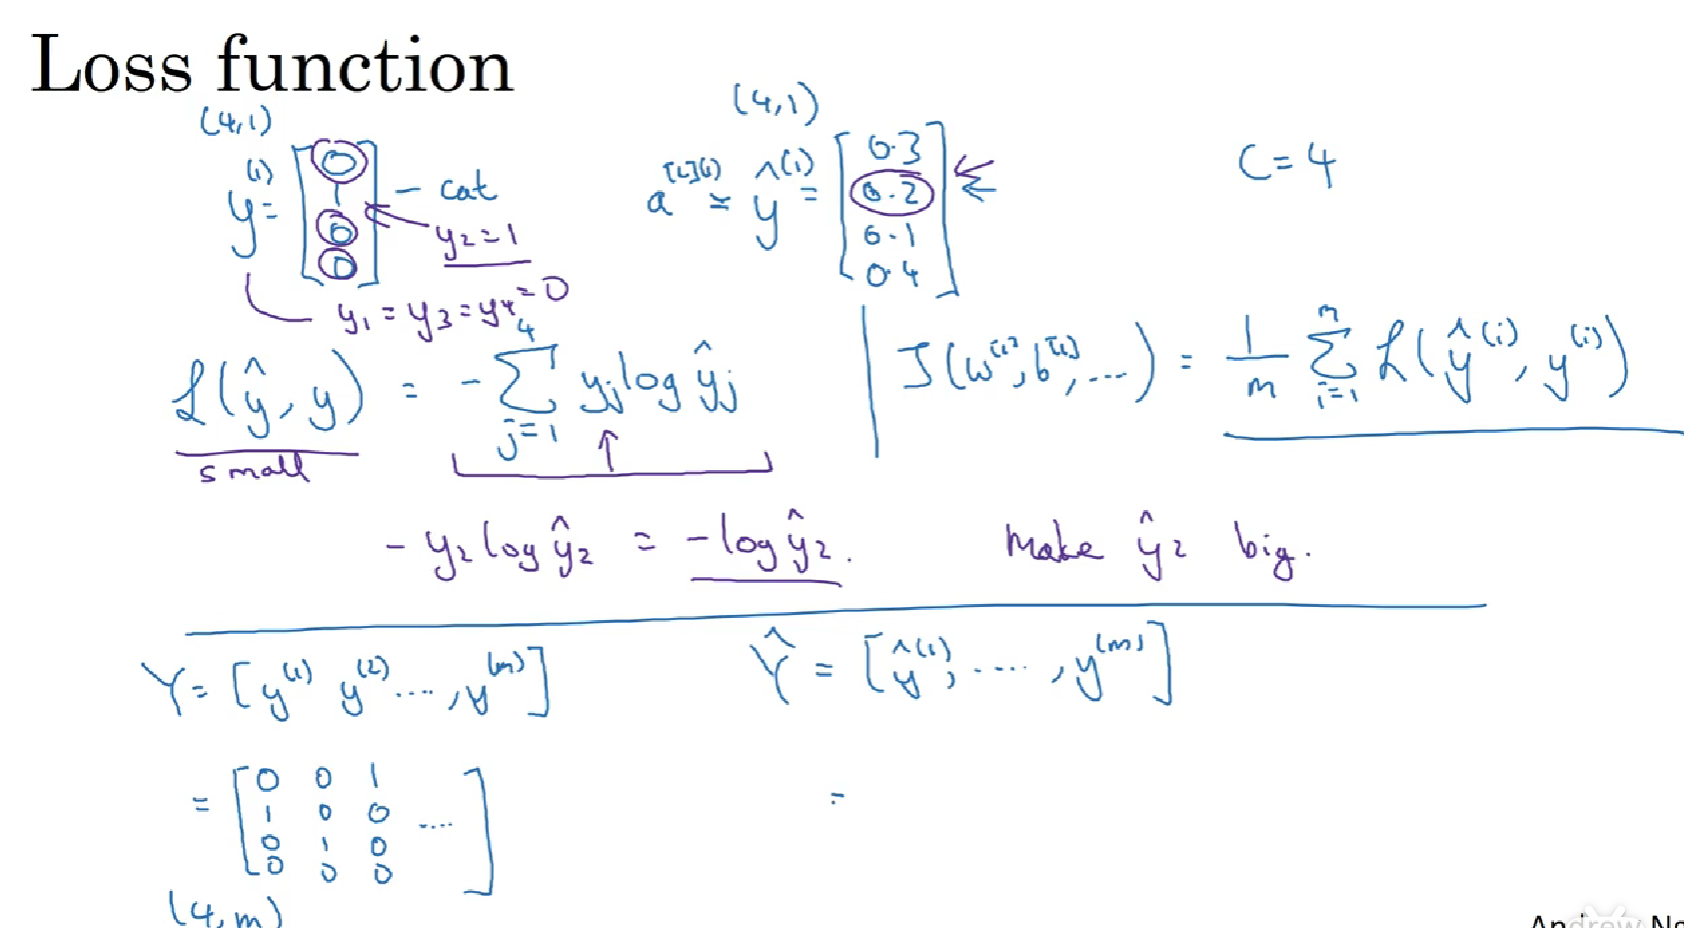 Loss function
(4,1)
y⁽¹⁾ = [0 1 0 0] - cat
y₂ = 1
y₁ = y₃ = y₄ = 0
(4,1)
a^[L](1) = ŷ⁽¹⁾ = [0.3 0.2 0.1 0.4]
C = 4
ℒ(ŷ, y) = - ∑_{j=1}^{4} y_j log ŷ_j
small
J(w^[1], b^[1], ...) = 1/m ∑_{i=1}^{m} ℒ(ŷ⁽ⁱ⁾, y⁽ⁱ⁾)
- y₂ log ŷ₂ = - log ŷ₂. Make ŷ₂ big.
Y = [y⁽¹⁾ y⁽²⁾ ...., y⁽ᵐ⁾]
Ŷ = [ŷ⁽¹⁾, ...., y⁽ᵐ⁾]
= [0 0 1
1 0 0 ....
0 1 0
0 0 0]
(4, m)
=
Andrew